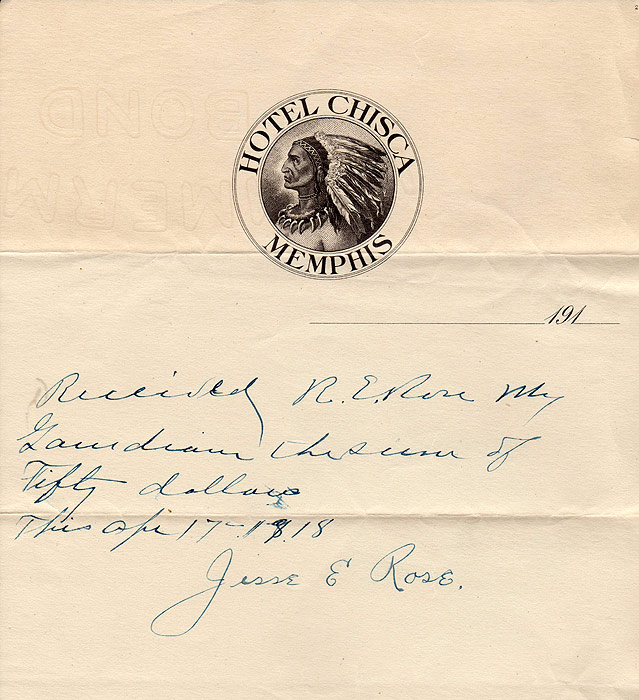 HOTEL CHISCA
MEMPHIS
191
Received R. E. Rose My
Gaurdian the sum of
Fifty dollars
This Apr 17-1918
Jesse E Rose.